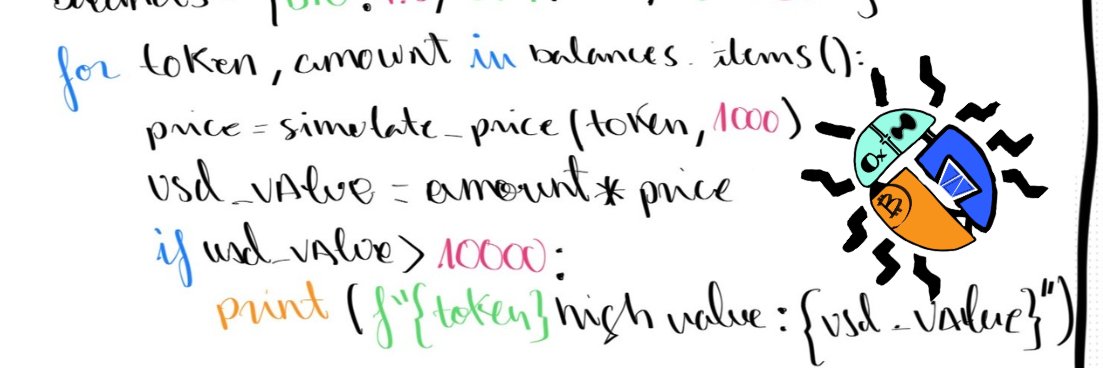 for token, amount in balances.items():
price = simulate_price(token, 1000)
usd_vAlue = amount * price
if usd_vAlue > 10000:
print (f"{token} high value: {usd_vAlue}")
0x
₿